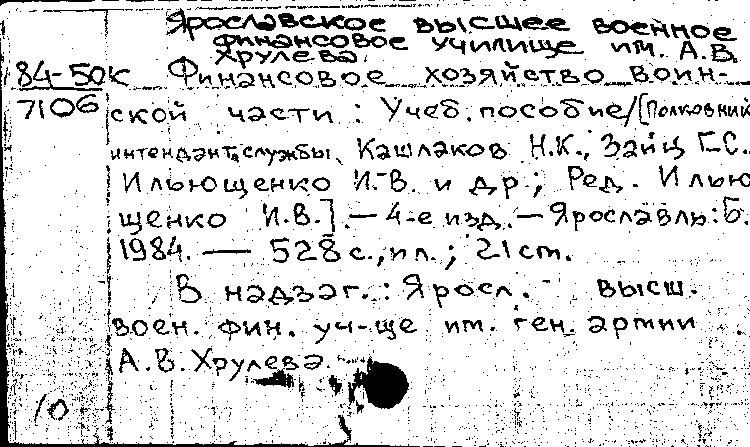 Ярославское высшее военное
финансовое училище им. А.В
Хрулева.
84-50к Финансовое хозяйство воин-
7106 ской части : Учеб. пособие/[Полковник
интендант. службы Кашлаков Н.К., Зайц Г.С.
Ильющенко И.В. и др.; Ред. Илью
щенко И.В.]. — 4-е изд. — Ярославль: Б.
1984. — 528 с., ил.; 21 см.
В надзаг.: Яросл. высш.
воен. фин. уч-ще им. ген. армии
А.В. Хрулева
10